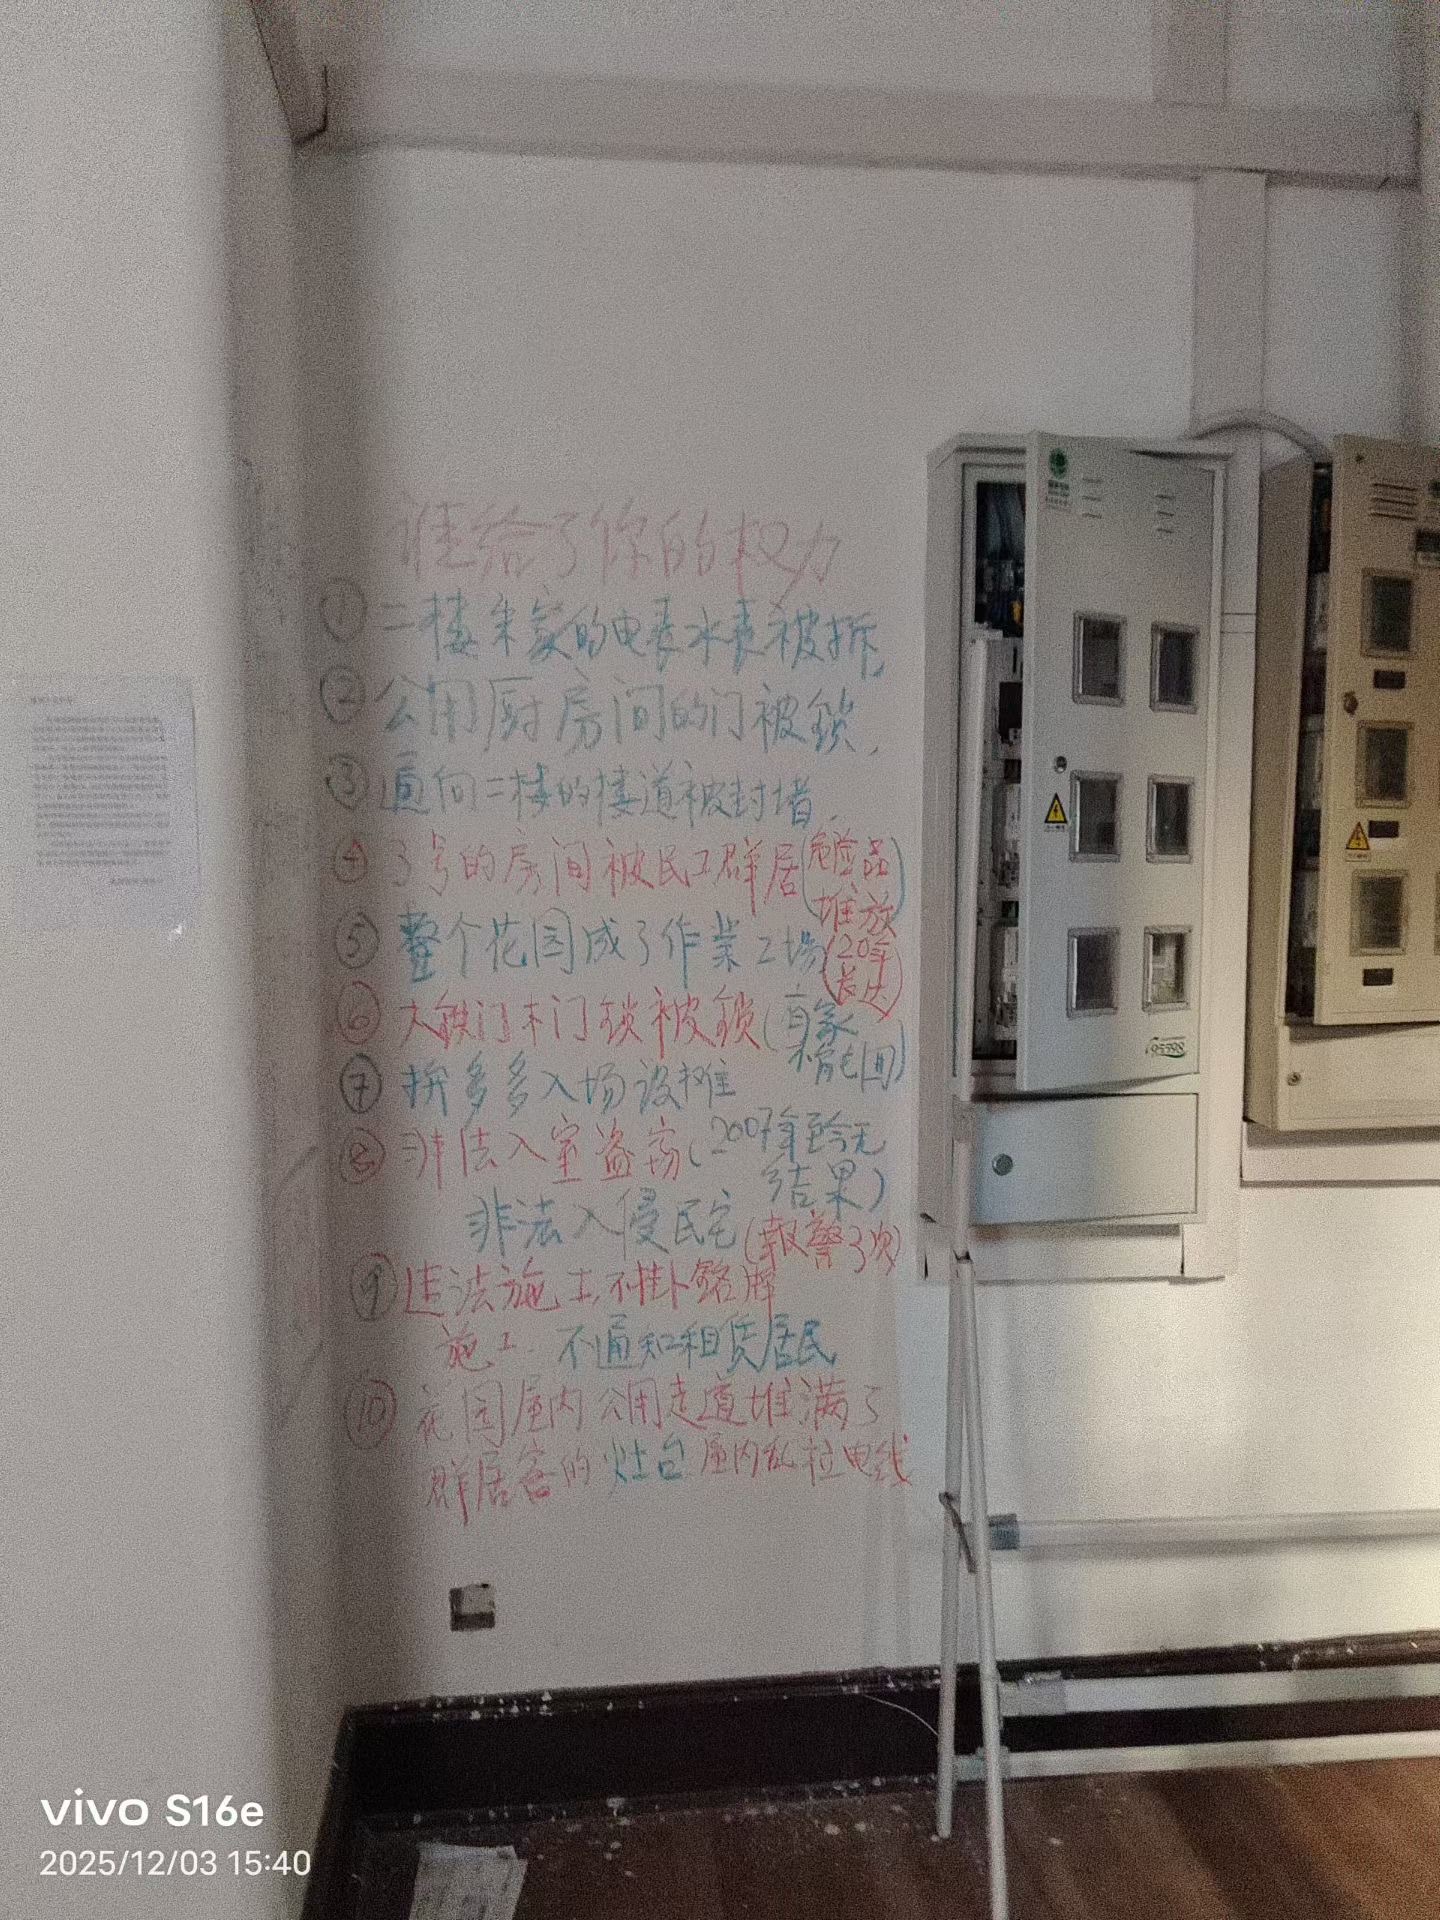 谁给了你的权力
① 二楼朱家的电表水表被拆,
② 公用厨房间的门被鎖,
③ 通向二楼的楼道被封堵,
④ 3号的房间被民工群居(危险品堆放)
(20年长达)
⑤ 整个花园成了作業工場
⑥ 大鉄门木门鎖被鎖(有家不能回)
⑦ 拼多多入场设摊
⑧ 非法入室盗窃(2007年至今无结果)
非法入侵民宅(報警3次)
⑨ 违法施工,不挂銘牌
施工. 不通知租赁居民
⑩ 花园屋内公用走道堆满了
群居客的灶台屋内乱拉电线
95598
vivo S16e
2025/12/03 15:40